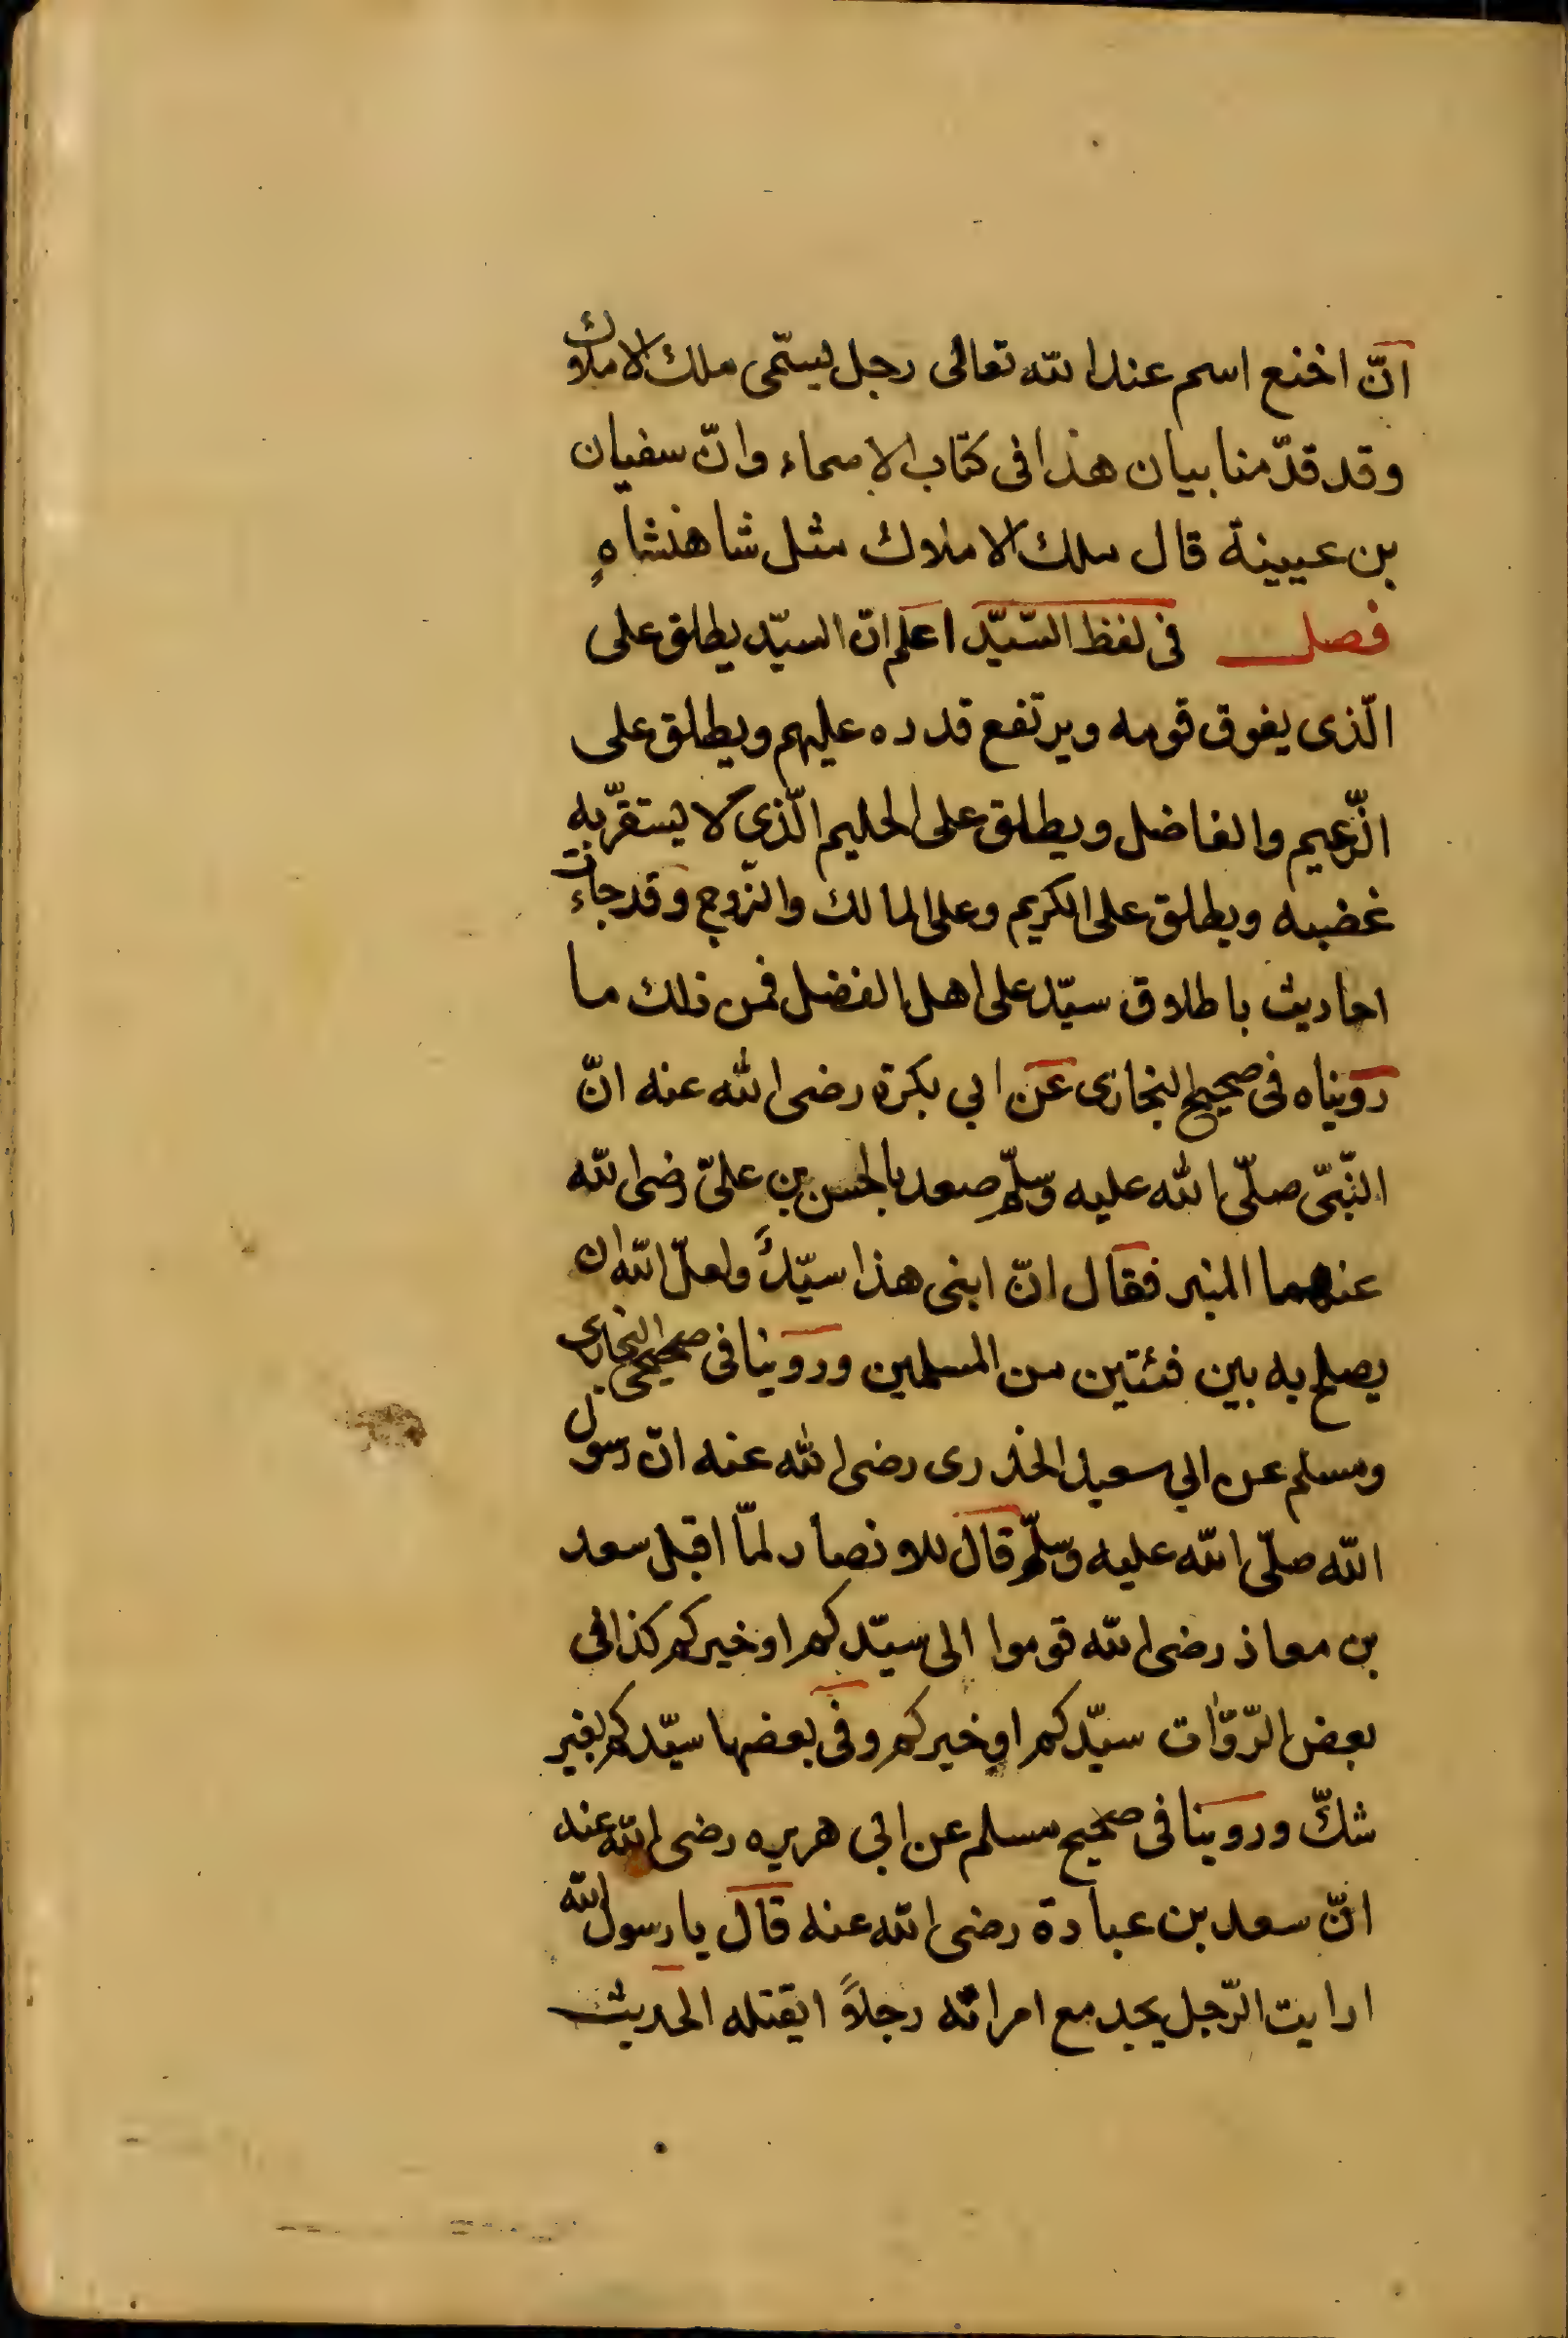 انّ اخنع اسم عند الله تعالى رجل يسمّى ملك الاملاك
وقد قدّمنا بيان هذا فى كتاب الاسماء وانّ سفيان
بن عيينة قال ملك الاملاك مثل شاهنشاهٍ
فصل فى لفظ السّيّد اعلم انّ السيّد يطلق على
الّذى يفوق قومه ويرتفع قدره عليهم ويطلق على
الزّعيم والفاضل ويطلق على الحليم الّذي لا يستقرّ به
غضبه ويطلق على الكريم وعلى المالك والزّوج وقد جاءت
احاديث باطلاق سيّد على اهل الفضل فمن ذلك ما
رويناه فى صحيح البخارى عن ابي بكرة رضى الله عنه انّ
النّبىّ صلّى الله عليه وسلّم صعد بالحسن بن علىّ رضى الله
عنهما المنبر فقال انّ ابنى هذا سيّدً ولعلّ الله ان
يصلح به بين فئتين من المسلمين وروينا فى صحيحى البخارى
ومسلم عن ابي سعيد الخذرى رضى الله عنه انّ رسول
الله صلّى الله عليه وسلّم قال للانصار لمّا اقبل سعد
بن معاذ رضى الله قوموا الى سيّدكم او خيركم كذا فى
بعض الرّوّات سيّدكم او خيركم وفى بعضها سيّدكم بغير
شكّ وروينا فى صحيح مسلم عن ابي هريره رضى الله عنه
انّ سعد بن عبادة رضى الله عنه قال يا رسول الله
ارايت الرّجل يجد مع امراته رجلاً ايقتله الحديث